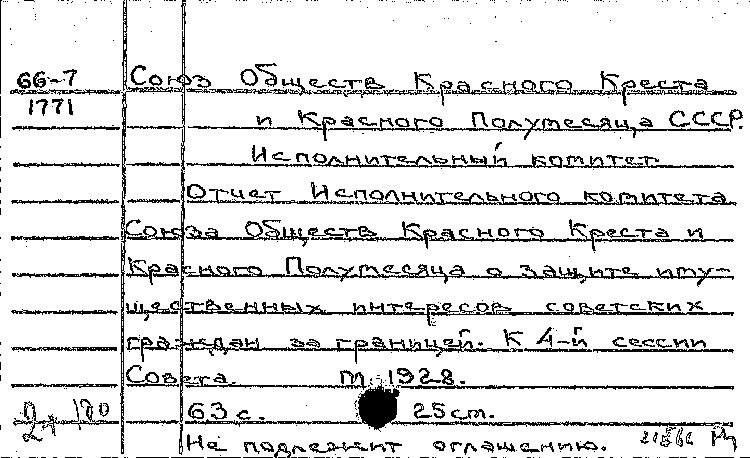 66-7 Союз Обществ Красного Креста
1771 и Красного Полумесяца СССР.
Исполнительный комитет
Отчет Исполнительного комитета
Союза Обществ Красного Креста и
Красного Полумесяца о защите иму-
щественных интересов советских
граждан за границей. К 4-й сессии
Совета. М. 1928.
63 с. 25 см.
Не подлежит оглашению.